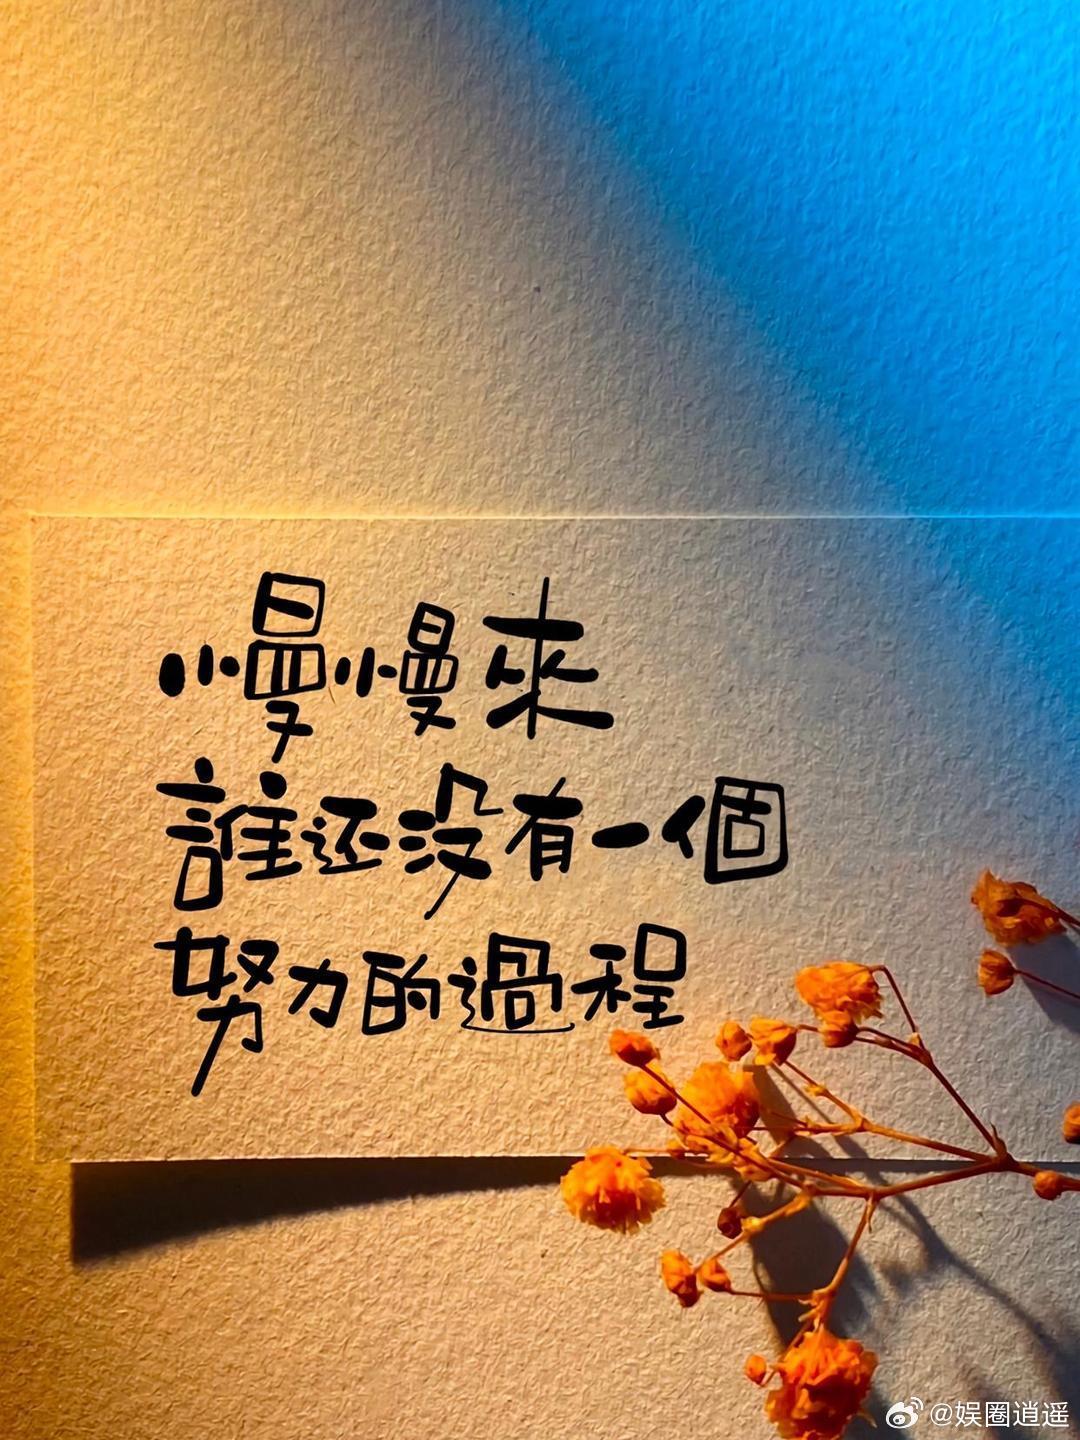 慢慢來
誰还没有一個
努力的過程
@娱圈逍遥